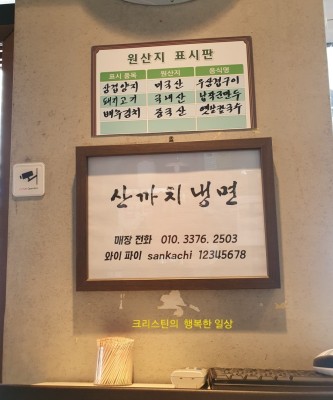 원산지 표시판
표시 품목 원산지 음식명
삼겹양지 미국산 우삼겹구이
돼지고기 국내산 납작군만두
배추김치 중국산 옛날칼국수
산까치냉면
매장 전화 010. 3376. 2503
와이 파이 sankachi 12345678
크리스틴의 행복한 일상